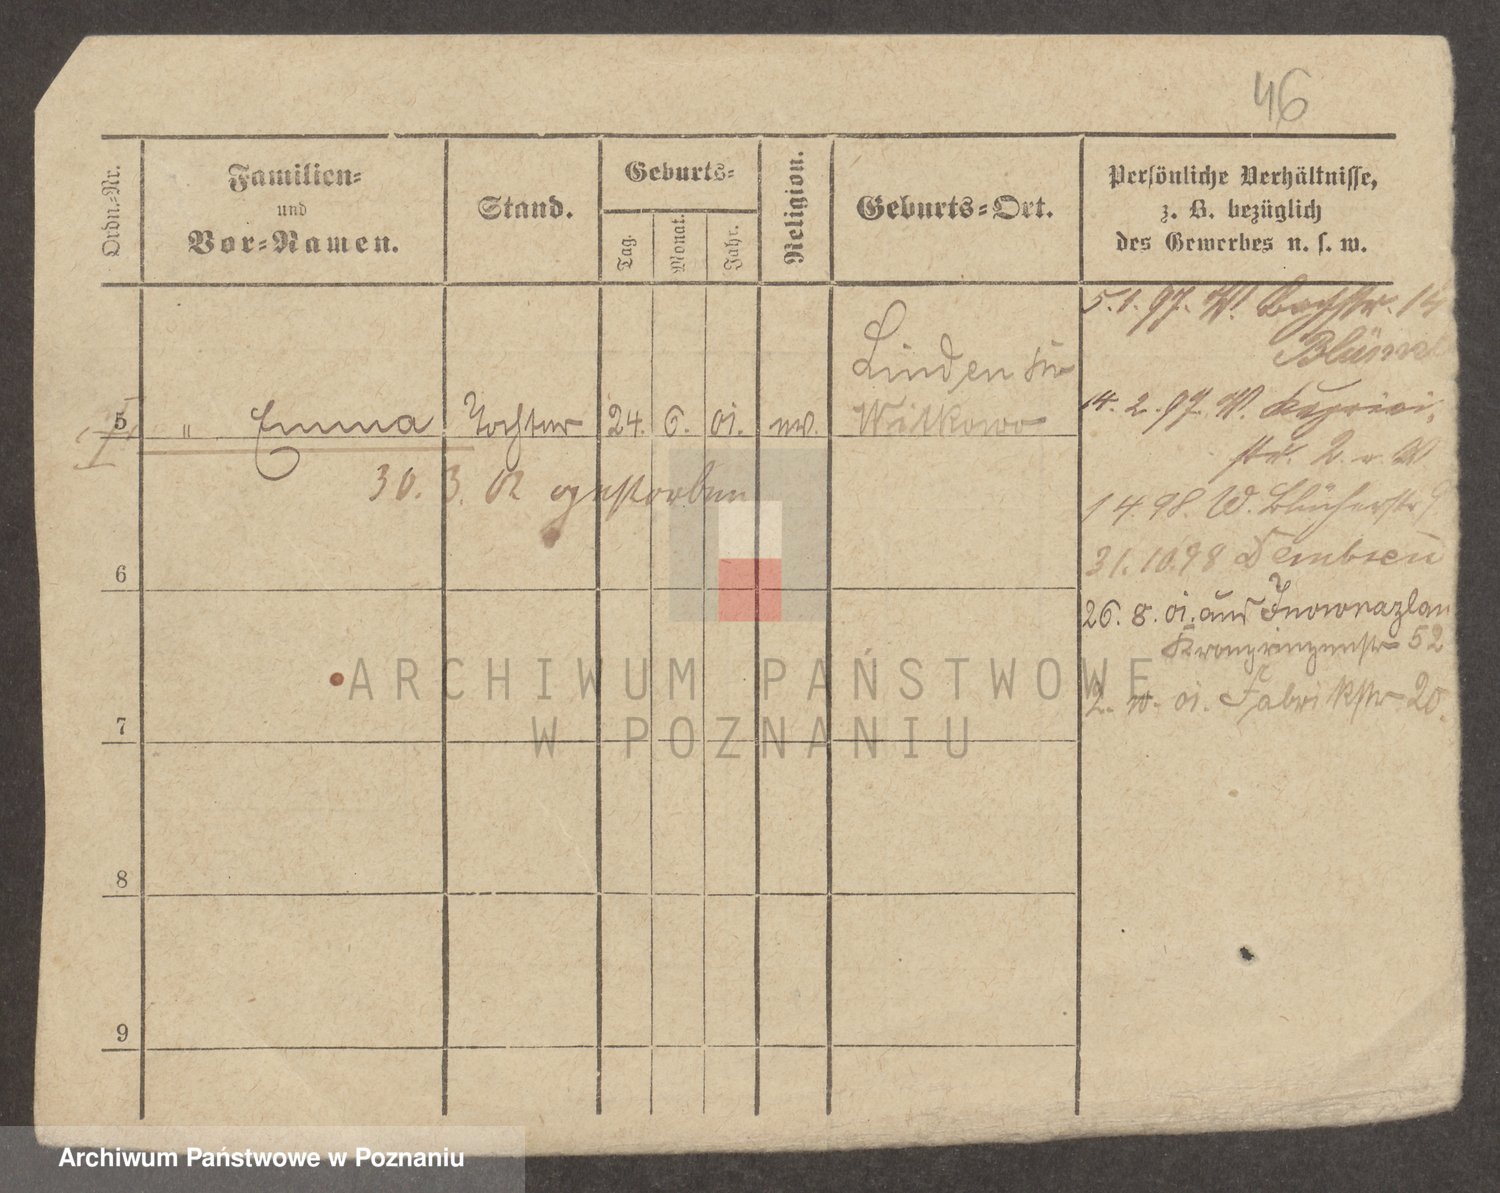 46
Ordn.-Nr.
Familien-
und
Vor-Namen.
Stand.
Geburts-
Tag.
Monat.
Jahr.
Religion.
Geburts-Ort.
Persönliche Verhältnisse,
z. B. bezüglich
des Gewerbes u. s. w.
5 " Emma Tochter 24. 6. 01. ev.
Linden
Witkowo
30. 3. 02 gestorben
6
7
8
9
5. 1. 97. W. 14
14. 2. 97. W.
str. 2.
1 4 98. W. Blücherstr 9
31. 10. 98 Dembsen
26. 8. 01. aus Inowrazlaw
Kronprinzenstr 52
01. Fabrikstr 20.
ARCHIWUM PAŃSTWOWE
W POZNANIU
Archiwum Państwowe w Poznaniu